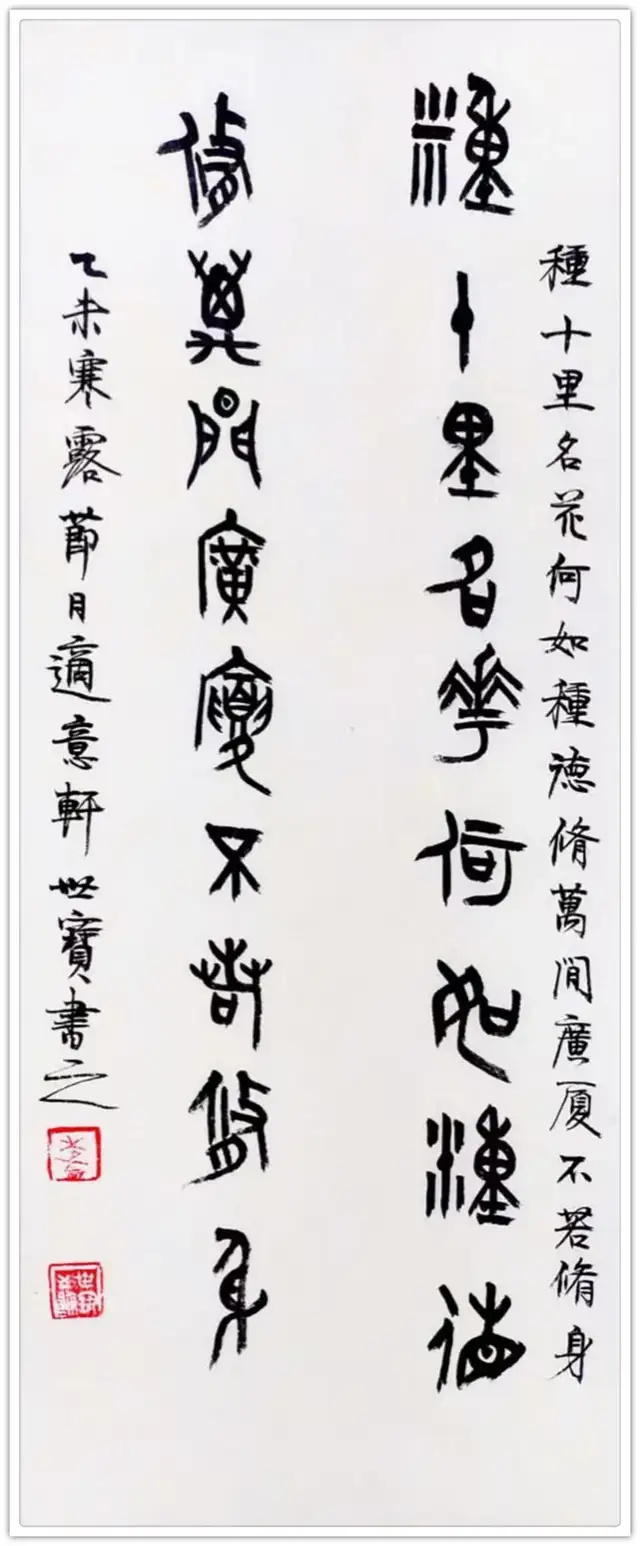 種十里名花何如種徳脩萬間廣厦不若脩身
種十里名華何如種德
脩萬間廣廈不若脩身
乙未寒露節月適意軒世寶書之